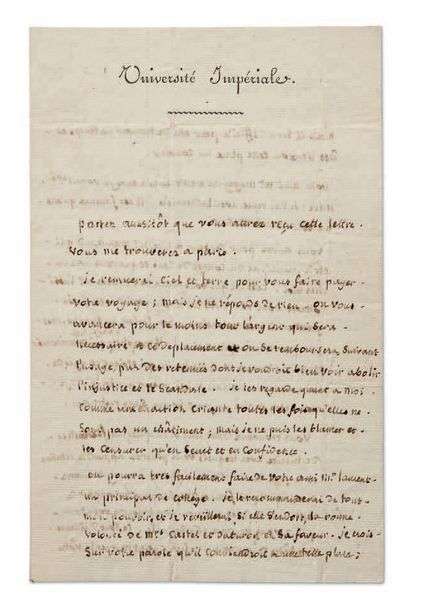 Université Impériale.
partez aussitôt que vous aurez reçu cette lettre.
vous me trouverez a paris.
je remuerai ciel et terre pour vous faire payer
votre voyage; mais je ne réponds de rien. on vous
avancera pour le moins tout l'argent qui sera
nécessaire et on se remboursera, suivant
l'usage, par des retenues dont je voudrais bien voir abolir
l'injustice et le scandale. je les regarde quant a moi
comme une exaction criante toutes les fois qu'elles ne
sont pas un châtiment; mais je ne puis les blamer et
les censurer qu'en secret et en confidence.
on pourra très facilement faire de votre ami Mr. laurent
un principal de collège. je le recommanderai de tout
mon pouvoir, et je réveillerai, si elle s'endort, la bonne
volonté de Mrs. Castel et en sa faveur. je crois
sur votre parole qu'il conviendroit a une telle place;